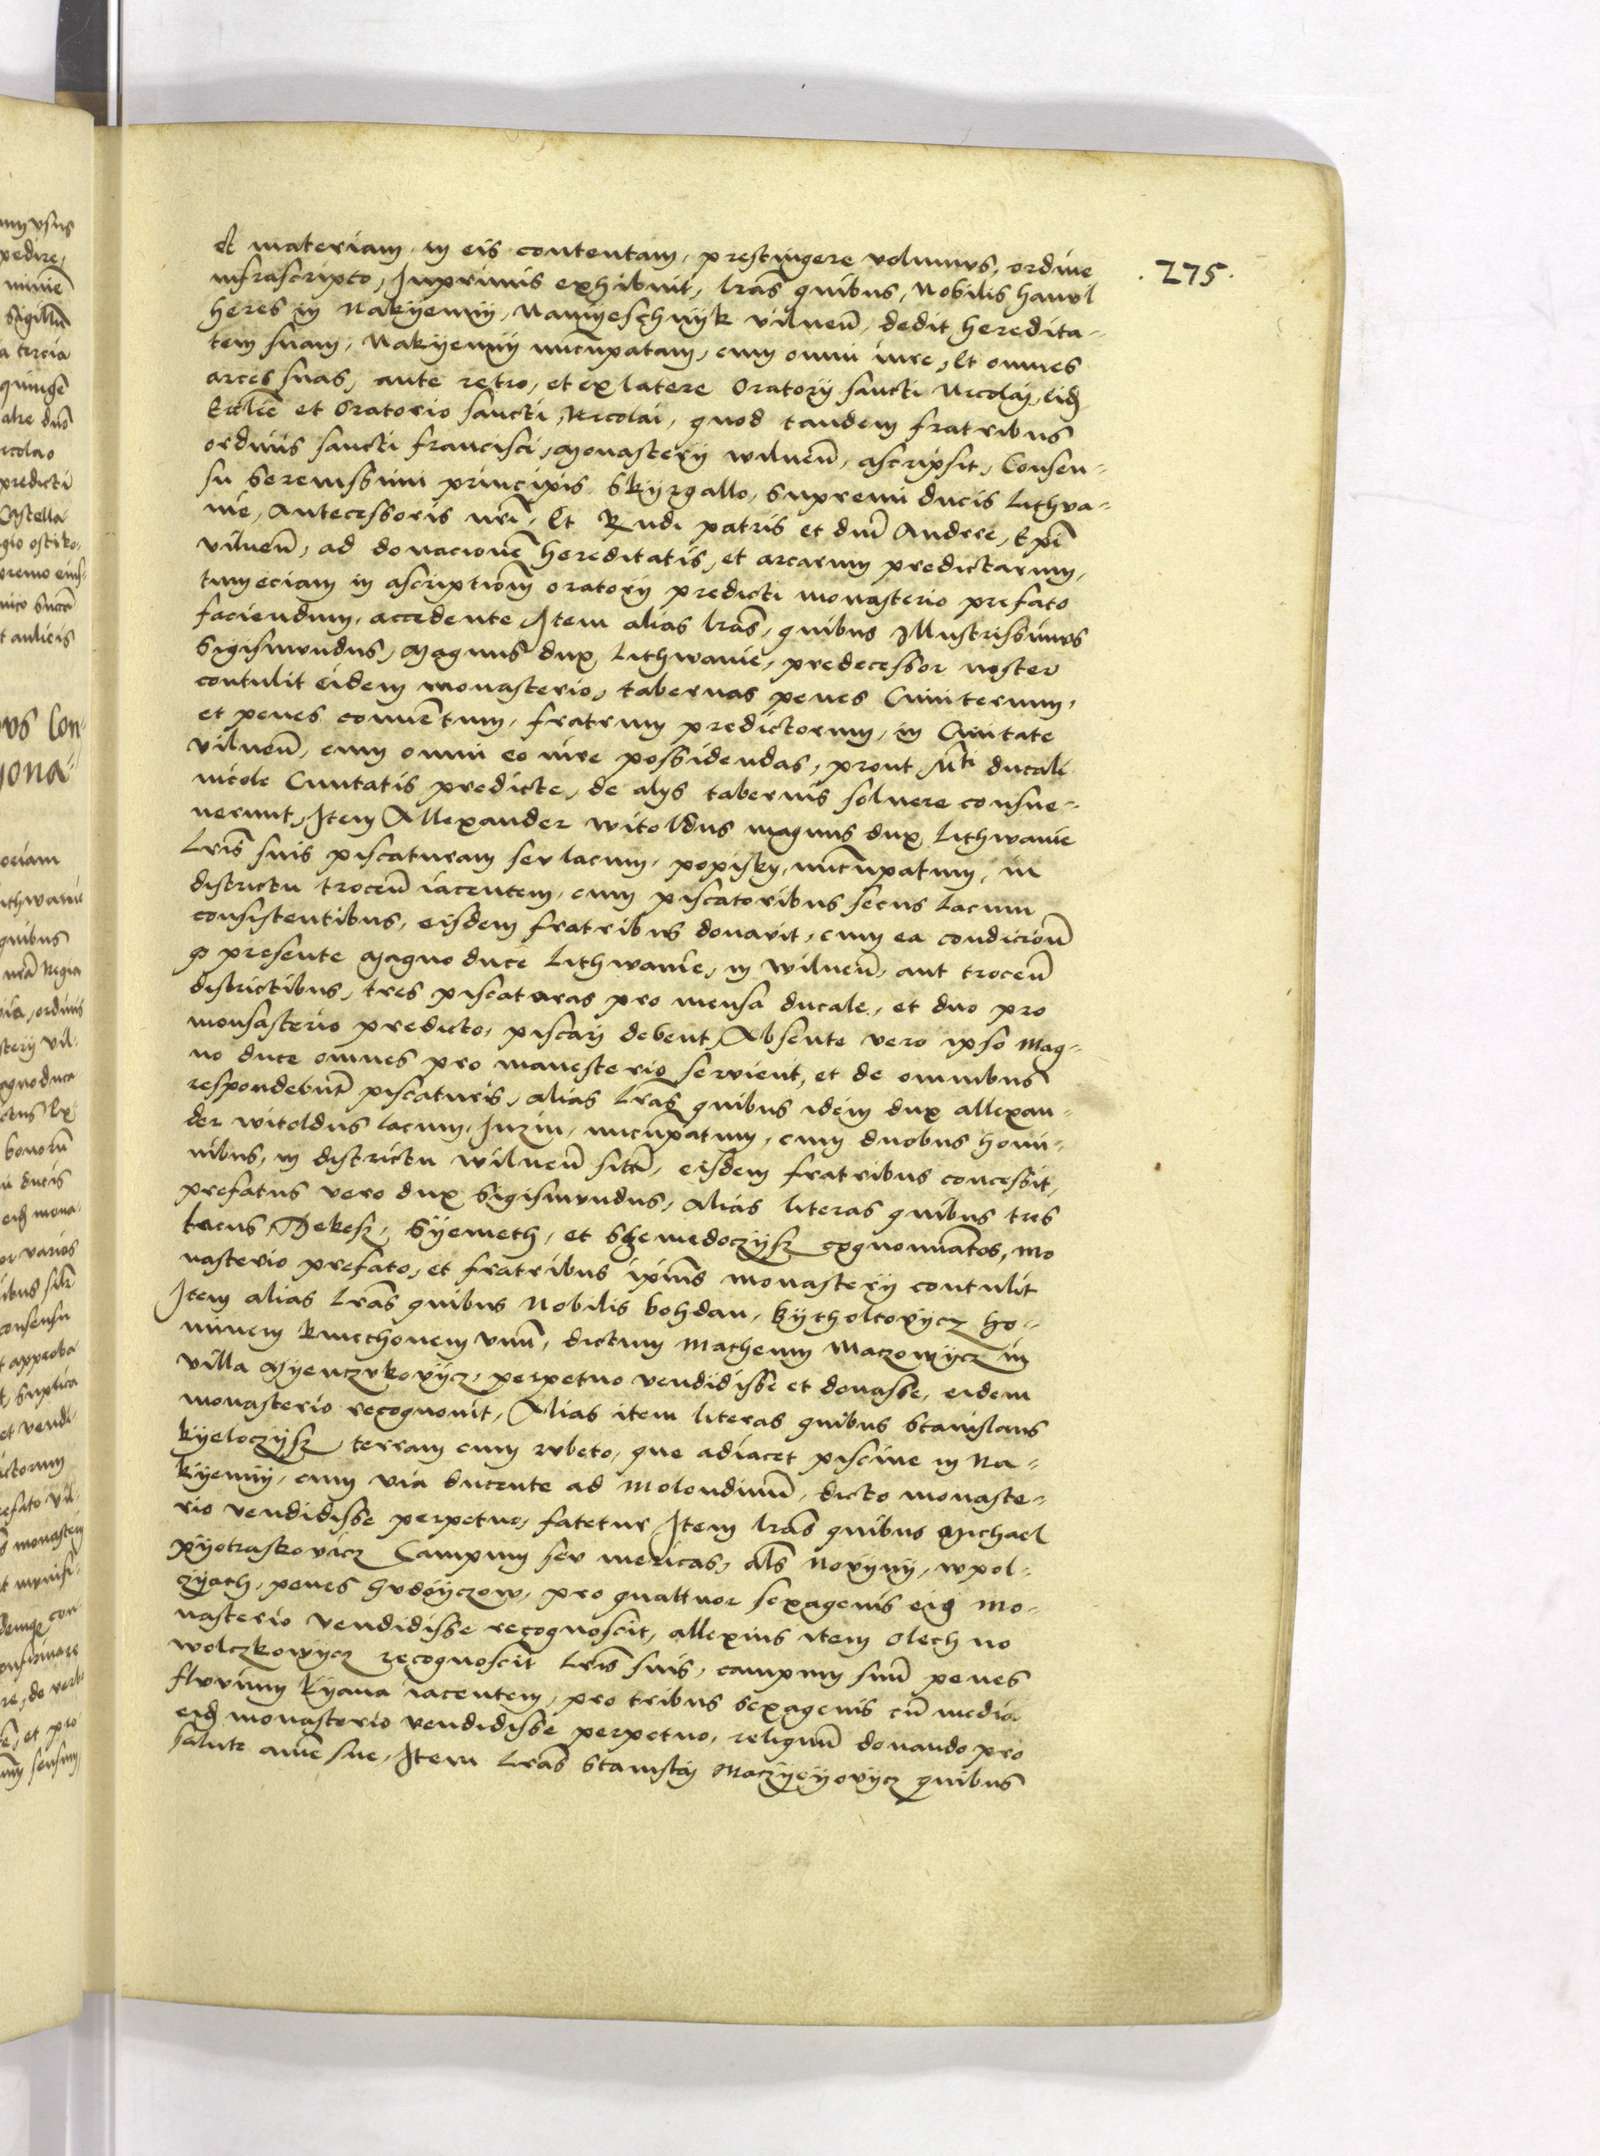 et materiam in eis contentam, prestringere volumus, ordine
.275.
infrascripto, Inprimis exhibuit, lras quibus, Nobilis hanul
heres in Nakyemny, Namyeschnyk vilnen, dedit heredita-
tem suam, Nakyemny nuncupatam, cum omni iure, Et omnes
arces suas, ante retro, et ex latere Oratory sancti Nicolai, eid
Ecclie et Oratorio sancti Nicolai, quod tandem fratribus
ordinis sancti francisci, Monastery wilnen, ascripsit, Consen-
su Serenissimi principis Skyrgallo, Supremi ducis Lithva-
nie, Antecessoris nri, Et Rndi patris et dni Andree, Epi
vilnen, ad donacionem hereditatis, et arcarum predictarum,
tum eciam in ascriptiom oratory predicti monasterio prefato
faciendum, accedente Item alias lras, quibus Illustrissimus
Sigismundus, Magnus dux Lithwanie, predecessor noster
contulit eidem monasterio, tabernas penes Cimiterium,
et penes conuentum, fratrum predictorum, in Ciuitate
vilnen, cum omni eo iure possidendas, prout ducali
incole Ciuitatis predicte, de alys tabernis soluere consue-
uerunt, Item Allexander witoldus magnus dux Lithwanie
Lris suis piscaturam seu lacum, popisky, nuncupatum, in
districtu trocen iacentem, cum piscatoribus secus Lacum
consistentibus, eisdem fratribus donauit, cum ea condicion
q presente Magno duce Lithwanie, in wilnen, aut trocen
districtibus, tres piscaturas pro mensa ducale, et duo pro
monsasterio predicto, piscari debent, Absente vero ipso Mag-
no duce omnes pro manesterio seruient, et de omnibus
respondebunt piscaturis, alias Lras quibus idem dux allexan-
der witoldus lacum, Iurzin, nuncupatum, cum duobus homi-
nibus, in districtu wilnen sitis, eisdem fratribus concessit,
prefatus vero dux Sigismundus, alias literas quibus tres
lacus, Syemeth, et cognominatos, Mo
nasterio prefato, et fratribus ipius monastery contulit
Item alias Lras quibus Nobilis bohdan, ho-
minem kmethonem vnum, dictum Mathenm Maczowycz in
villa Myenczykovycz, perpetuo vendidisse et donasse, eidem
monasterio recognouit, Alias item literas quibus Stanislaus
kyeloczysz terram cum rubeto, que adiacet piscine in Na-
kyemny, cum via ducente ad Molendinum, dicto monaste-
rio vendidisse perpetuo, fatetur Item lras quibus Michael
pyotraskovicz Campum seu mericas, als Novyny, wpol-
czyach, penes hudoyczow, pro quattuor sexagenis eid Mo-
nasterio vendidisse recognoscit, allexius item Olechno
wolczkowycz recognoscit Lris suis, campum suum penes
fluvium kyana iacentem, pro tribus sexagenis cum media
eid monasterio vendidisse perpetuo, reliquum donando pro
salute anime sue, Item Lras Stanislai Maczyeyovycz quibus